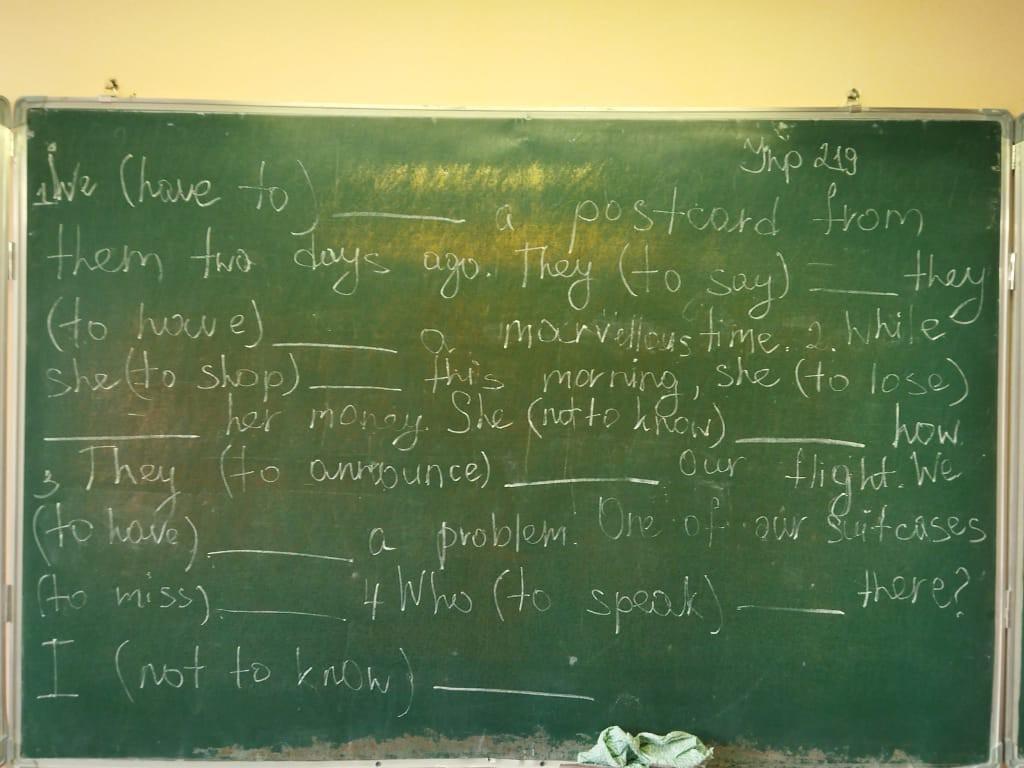 Упр 219
1. We (have to) ____ a postcard from
them two days ago. They (to say) ____ they
(to have) ____ a marvellous time. 2. While
she (to shop) ____ this morning, she (to lose)
____ her money. She (not to know) ____ how.
3. They (to announce) ____ our flight. We
(to have) ____ a problem. One of our suitcases
(to miss) ____ 4 Who (to speak) ____ there?
I (not to know) ____